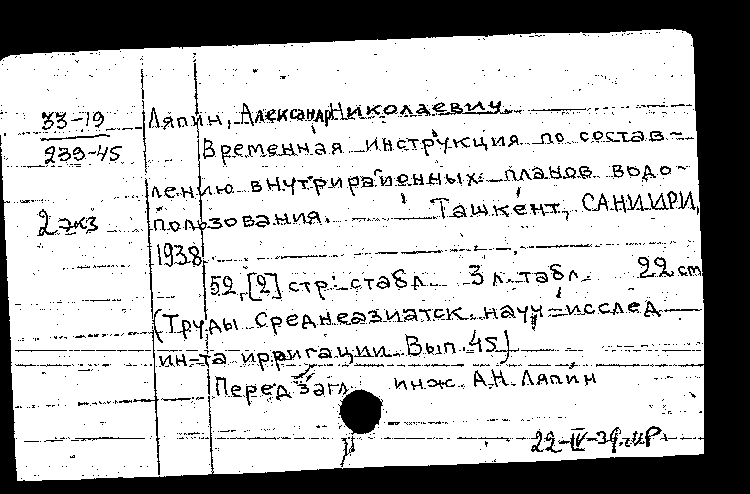 33-19 Ляпин, Александр Николаевич.
239-45 Временная инструкция по состав-
лению внутрирайонных планов водо-
2 экз пользования. Ташкент, САНИИРИ,
1938.
52, [2] стр. с табл. 3 л. табл. 22 см
(Труды Среднеазиатск. науч-исслед
ин-та ирригации. Вып. 45)
Перед загл. инж. А.Н. Ляпин
22-IV-39.